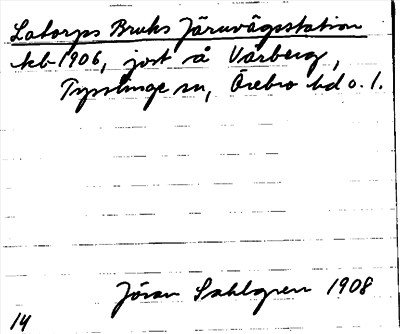 Latorps Bruks Järnvägsstation
kb 1906, jord å Vårberg,
Tysslinge sn, Örebro hd o. l.
Jöran Sahlgren 1908
14